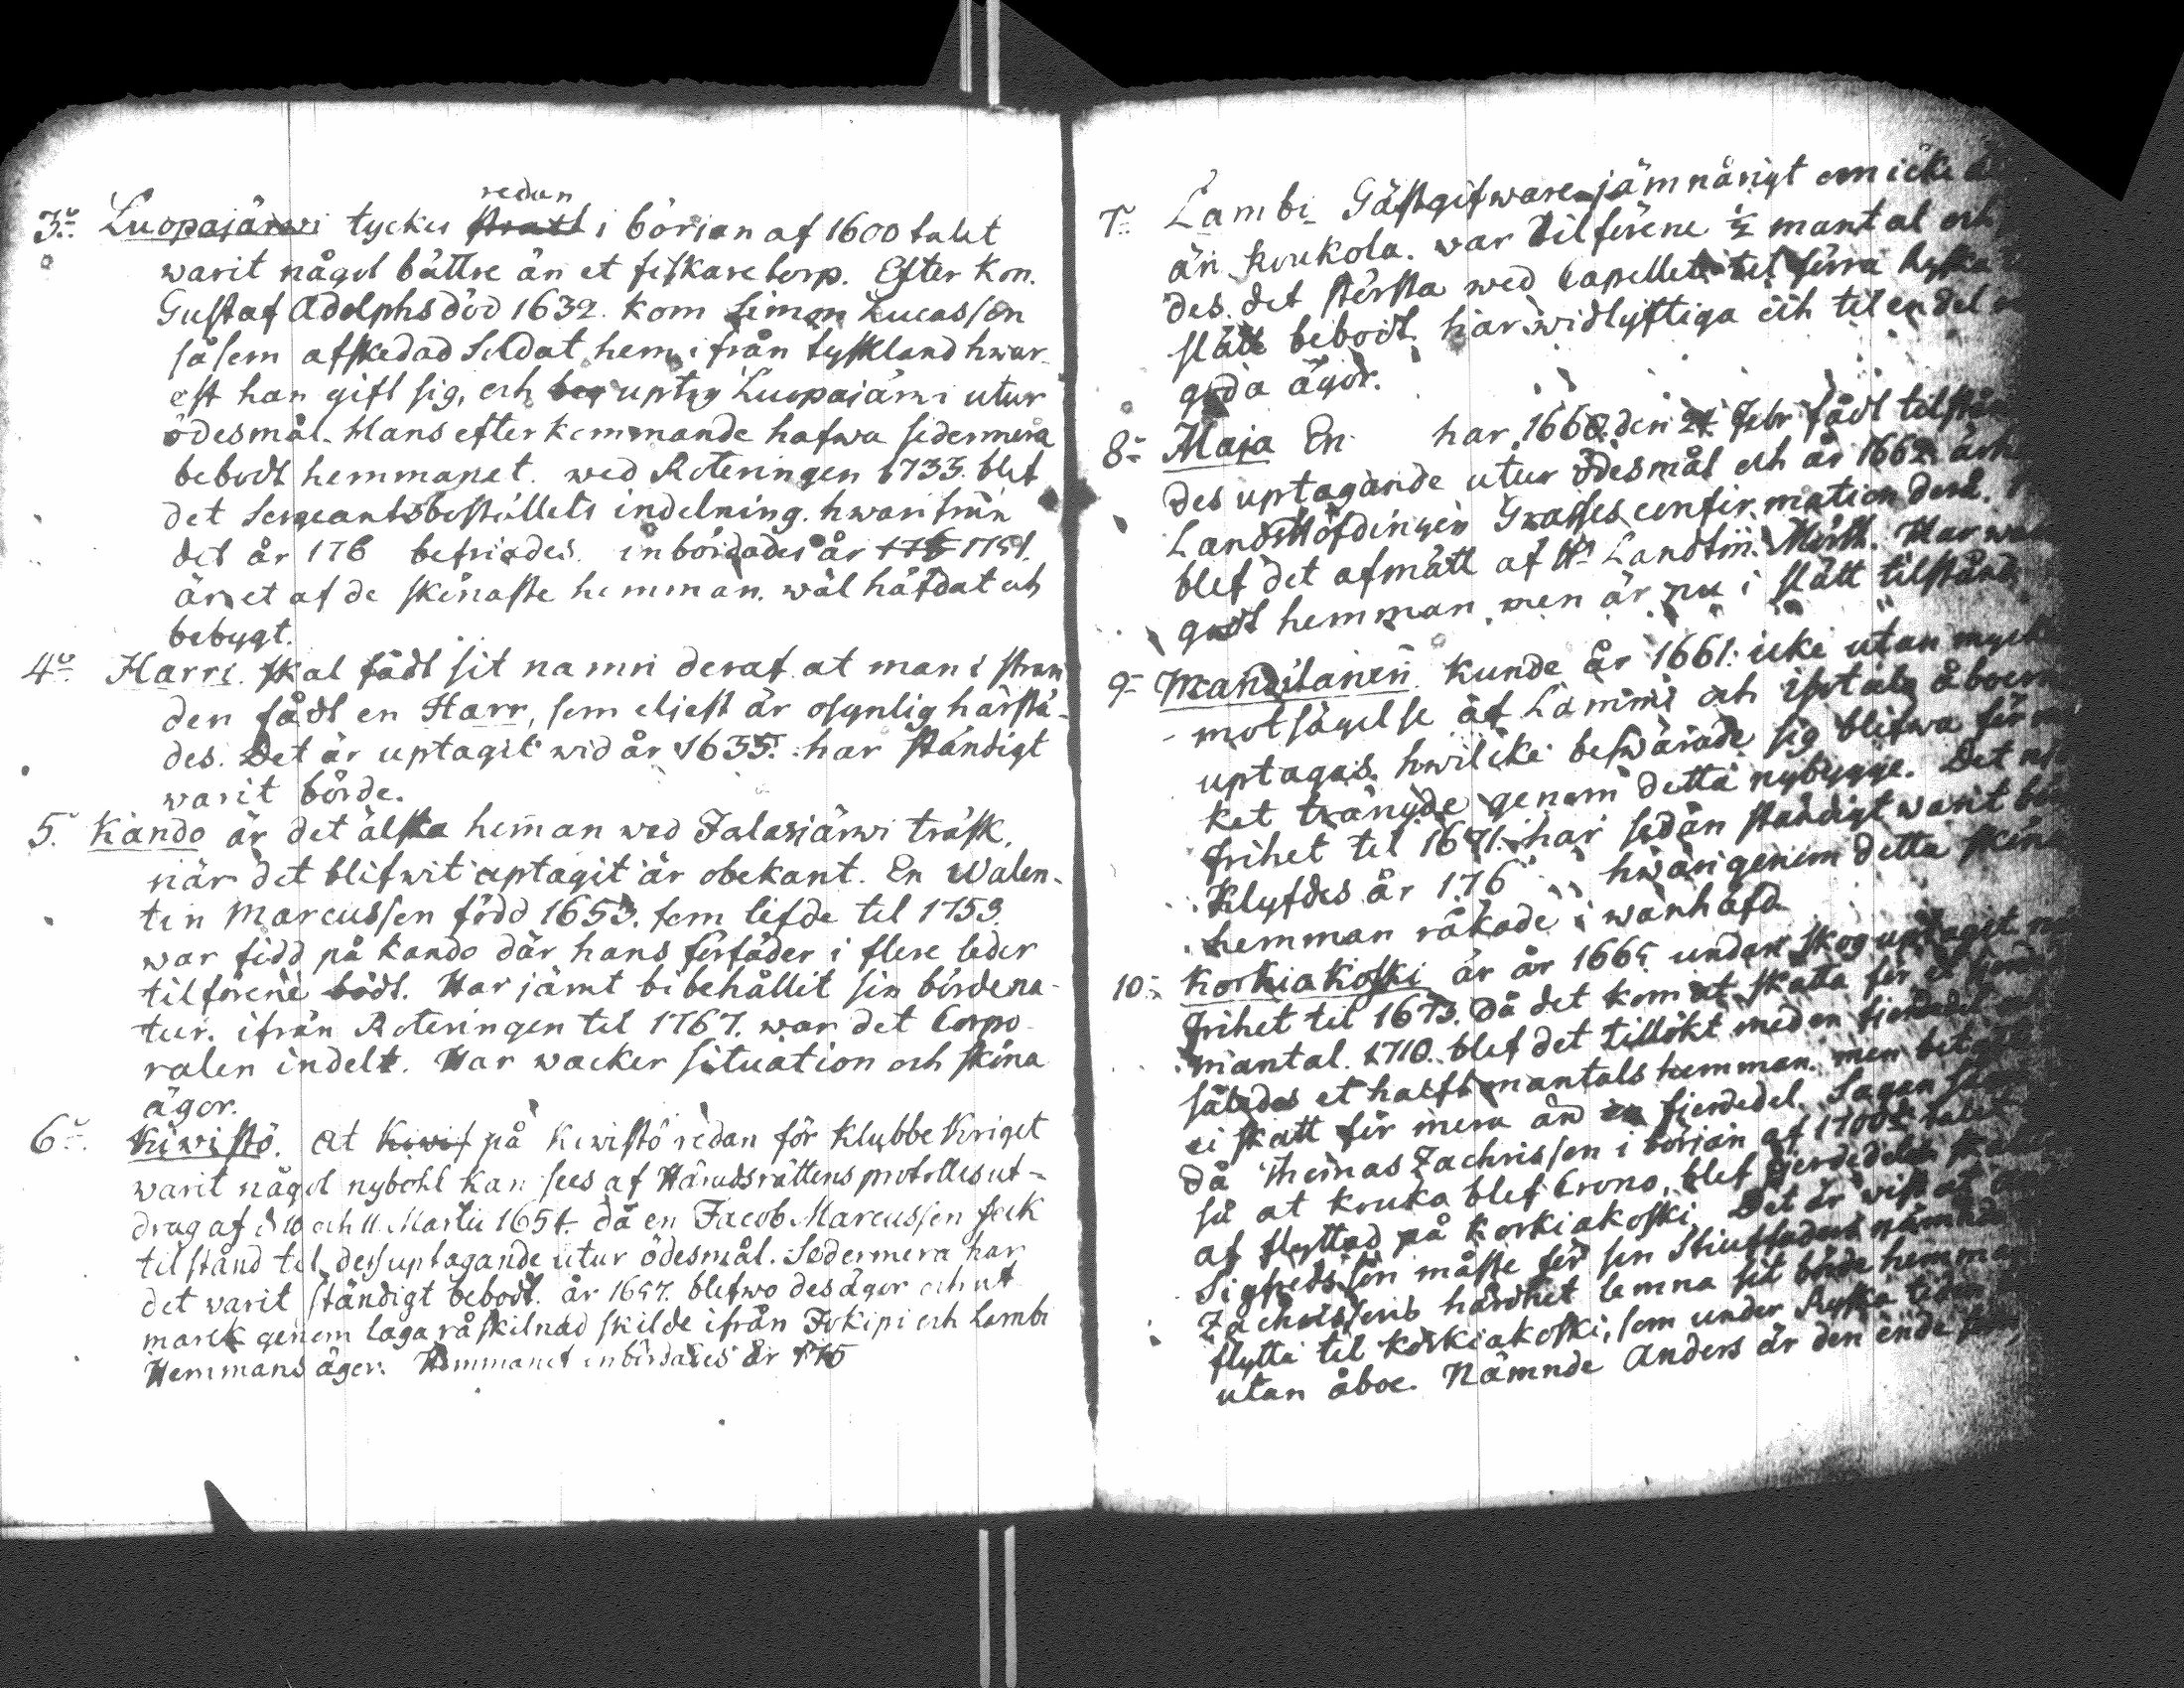 redan
3:o Luopajärwi tyckes straxt i början af 1600 talet
warit något bättre än et fiskare torp. Efter Kon.
Gustaf Adolphs död 1632. kom Simon Lucasson
såsom afskedad Soldat hem ifrån tyskland hwar-
est han gift sig, och beg uptog Luopajärwi utur
ödesmål. Hans efterkommande hafwa sedermera
bebodt hemmanet. wed Roteringen 1733. blef
det Sergeantsbeställets indelning. hwarifrån
det år 176 befriades. inbördades år 176 1751.
är et af de skönaste hemman. wäl häfdat och
bebygt.
4:o Harri. skal fådt sit namn deraf at man i stran
den fådt en Harr, som eljest är osynlig härstä-
des. Det är uptagit wid år 1635. har ständigt
warit börde.
5. Kando är det älsta hem̄an wed Jalasjärwi träsk.
när det blifwit uptagit är obekant. En Walen-
tin Marcusson född 1653. som lefde til 1753.
war född på Kando där hans förfäder i flere leder
tilförene bodt. Har jämt bibehållit sin börde na-
tur. ifrån Roteringen til 1767. war det Corpo-
ralen indelt. Har wacker situation och sköna
ägor.
6:o Kiwistö. At Kiwis på Kiwistö redan för Klubbe Kriget
warit någol nybohl kan sees af Häradsrättens protollesut-
drag af d 10 och 11 Martii 1654. då en Jacob Marcusson feck
tilstånd til dess uptagande utur ödesmål. Sedermera har
det varit ständigt bebodt. år 1697. blefwo des ägor och ut
mark genom laga råskilnad skilde ifrån Jokipi och Lambi
Hemmans ägor. Hemmanet inbördades år 175
7:- Lambi Gästgifware jämnårigt om icke
än Koukola. war tilförene ½ mantal och
des. det största wed Capellet. til förra Ryska
slätt bebodt. har widlyftiga och til en del
goda ägor.
8:- Maja En har 1660. den 24 Febr fådt tilstånd
des uptagande utur ödesmål och år 1662.
LandsHöfdingen Grasses confirmation derå.
blef det afmätt af Hr Landtm. Mörth. Har
godt hemman, men är nu i slätt tilstånd
9- Mandilanen. Kunde år 1661. icke utan
motsägelse af Lammi och
uptagas. hwilcke beswärade sig blifwa för
ket trängde genom detta nybygge. Det
frihet til 1671. har sedan ständigt warit
Klyfdes år 176 hwarigenom detta sköna
hemman råkade i wanhäfd
10:- Korkiakoski är år 1665 undan skog uptagit
frihet til 1673. Då det kom at skatta för et
mantal. 1710. blef det tillökt med en fjerdedel
således et halft mantals hemman. men
ei skatt för mera än en fjerdedel. Sagan
då Thomas Zachrisson i början af 1700 talet
så at Kouka blef Crono, blef fjerdedelen
af flyttad på Korkiakoski. Det är wist at
Sigfredsson måste för sin Stiuffaders nämnde
Zachrissons hårdhet lemna sit börde hemman
flytta til Korkiakoski, som under Ryska tiden
utan åboe. Nämnde Anders är den ende